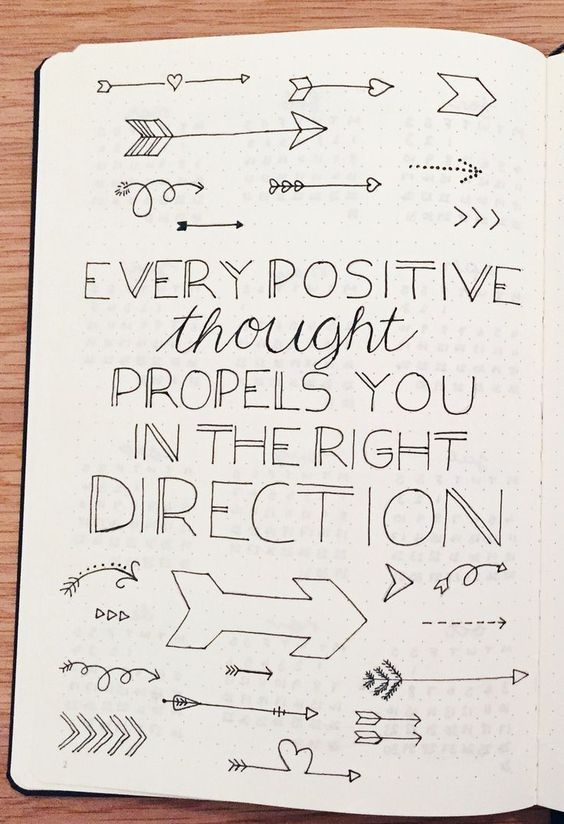 EVERY POSITIVE
thought
PROPELS YOU
IN THE RIGHT
DIRECTION
1